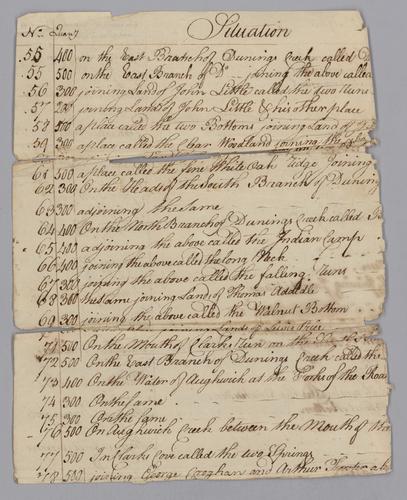 No. Quany Situation
55 400 on the East Branch of Dunings Creek called
55 500 on the East Branch of Do. joining the above called
56 300 joining Land of John Little called the two Runs
57 200 joining Lands of John Little & his other place
58 500 a place called the two Bottoms joining Land of
59 300 a place called the Clear Woodland joining the
61 500 a place called the fine White Oak Ridge joining
62 300 On the Heads of the South Branch of Duning
63 300 adjoining the same
64 400 On the North Branch of Dunings Creek called
65 400 adjoining the above called the Indian Camp
66 400 joining the above called the long Neck
67 300 joining the above called the falling Runs
68 300 the same joining Land of Thomas
69 300 joining the above called the Walnut Bottom
71 500 On the Mouth of Clarks Run on the
72 500 On the East Branch of Dunings Creek called the
73 400 On the Water of Aughwich at the Forks of the Road
74 300 On the Same
75 300 On the Same
76 500 On Aughwich Creek between the Mouth of
77 500 In Clarks Cove called the two Springs
78 500 joining George Croghan and Arthur